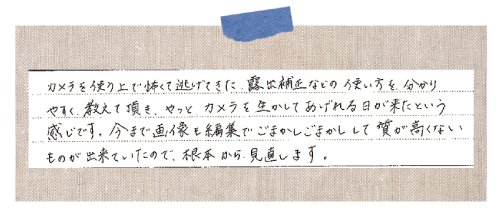 カメラを使う上で怖くて逃げてきた露出補正などの使い方を分かり
やすく教えて頂き、やっとカメラを生かしてあげれる日が来たという
感じです。今まで画像も編集でごまかしごまかしして質が高くない
ものが出来ていたので、根本から見直します。